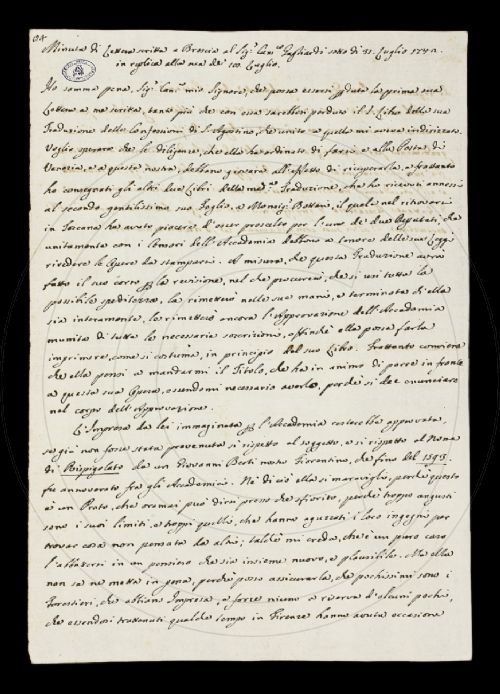 24
Minuta di Lettera scritta a Brescia al Sig.r Can.co Gagliardi sotto dì 31. Luglio 1742.
in replica alla sua de' 10. Luglio.
Ho somma pena, Sig.r Can.co mio Signore, che possa essersi perduta la prima sua
Lettera a me scritta, tanto più che con essa sarebbesi perduto il I. Libro della sua
Traduzione delle Confessioni di S. Agostino, che unito a quella mi aveva indirizzato.
Voglio sperare che le diligenze, che ella ha ordinato di farsi e alla Posta di
Venezia, e a questa nostra, debbano giovare all'effetto di recuperarla, e frattanto
ho consegnati gli altri due Libri della Traduzione, che ho ricevuti annessi
al secondo gentilissimo suo foglio, a Monsig.r Bottari, il quale nel ritrovarsi
in Toscana ha avuto piacere d'esser prescelto per l'uno de' due Deputati, che
unitamente con i Censori dell'Accademia debbono a tenore delle sue Leggi
rivedere le Opere da stamparsi. A misura, che questa Traduzione avrà
fatto il suo corso per la revisione, nel che procurerò, che si usi tutta la
possibile speditezza, la rimetterò nelle sue mani, e terminata ch'ella
sia interamente, le rimetterò ancora l'Approvazione dell'Accademia
munita di tutte le necessarie soscrizioni, affinchè ella possa farla
imprimere, come si costuma, in principio del suo Libro. Frattanto conviene
che ella pensi a mandarmi il Titolo, che ha in animo di porre in fronte
a questa sua Opera, essendomi necessario averlo, perchè si dee enunciare
nel corpo dell'Approvazione.
L'Impresa da lei immaginata per l'Accademia resterebbe approvata,
se già non fosse stata prevenuta sì rispetto al soggetto, e sì rispetto al Nome
di Rispigolato da un Giovanni Berti nostro Fiorentino, che fino del 1595.
fu annoverato fra gli Accademici. Nè di ciò ella si maravigli, perchè questo
è un Prato, che oramai può dirsi presso che sfiorito, perchè troppo angusti
sono i suoi limiti, e troppi quelli, che hanno aguzzati i loro ingegni per
trovar cosa non pensata da altri; talchè mi credo, che è un puro caso
l'abbattersi in un pensiero che sia insieme nuovo, e plausibile. Ma ella
non se ne metta in pena, perchè posso assicurarla, che pochissimi sono i
Forestieri, che abbiano Impresa, e forse niuno a riserva d'alcuni pochi,
che essendosi trattenuti qualche tempo in Firenze hanno avuta occasione